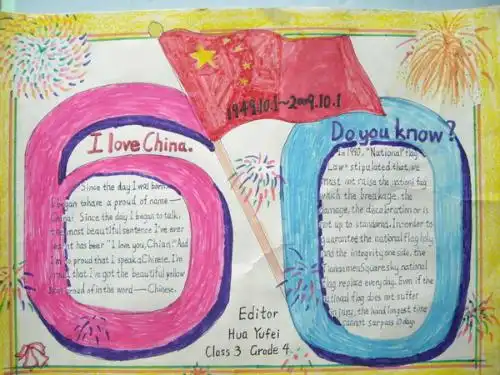 1949.10.1~2009.10.1
I love China.
Since the day I was born,
I began to have a proud of name—
China! Since the day I began to talk,
the most beautiful sentence I've ever
has been "I love you, Chian." And
I'm proud that I speak Chinese. I'm
proud that I've got the beautiful yellow
proud of in the word—Chinese.
Do you know?
In 1990, "National flag
Law" stipulated that we
must not raise the nationg flag
which the breakage, the
damage, the discoloration or is
not up to standarns. In order to
guarantee the national flag holy
and the integrity one side, the
Tiananmen Square sky national
flag replace everyday. Even if the
national flag does not suffer
injury, the hand longest time
cannot surpass 10 days.
Editor
Hua Yufei
Class 3 Grade 4